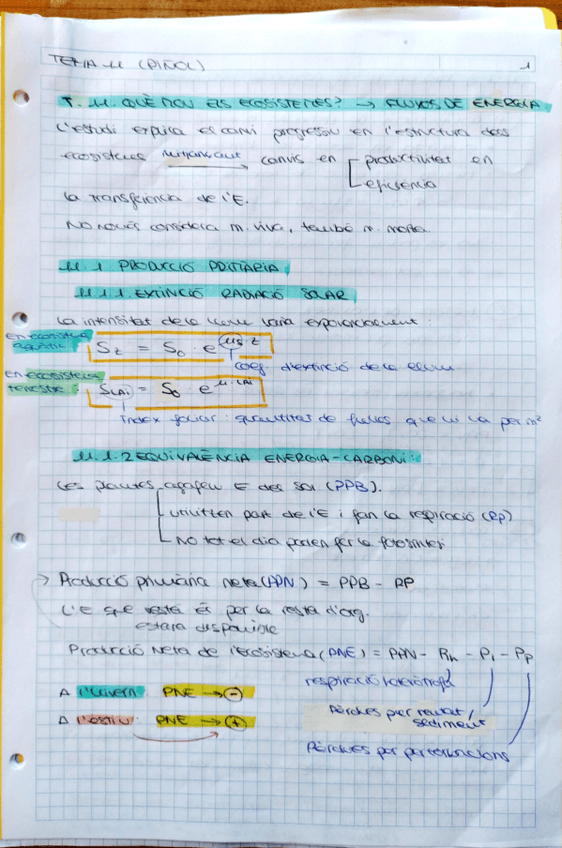 TEMA 11 (PIÑOL) 1
T.11. QUÈ MOU ELS ECOSISTEMES? → FLUXOS DE ENERGIA
L'estudi explica el canvi progressiu en l'estructura dels
ecosistemes mitjançant canvis en productivitat en
eficiència
la transferència de l'E.
No només considera m. viva, també m. morta.
11.1 PRODUCCIÓ PRIMÀRIA
11.1.1. EXTINCIÓ RADIACIÓ SOLAR
La intensitat de la llum varia exponencialment:
en ecosistema aquàtic: Sz = S0 · e^μs z
coef. d'extinció de la llum
en ecosistema terrestre: SLAI = S0 e^μ·LAI
índex foliar: quantitat de fulles que hi ha per m²
11.1.2 EQUIVALÈNCIA ENERGIA-CARBONI:
Les plantes agafen E del sol (PPB).
utilitzen part de l'E i fan la respiració (Rp)
No tot el dia poden fer la fotosíntesi
→ Producció primària neta (PPN) = PPB - RP
L'E que resta és per la resta d'org.
estarà disponible
Producció Neta de l'ecosistema (PNE) = PPN - Rh - Pi - Pp
respiració heteròtrofa
Pèrdues per rentat /
sediment
Pèrdues per pertorbacions
A l'hivern PNE → -
A l'estiu: PNE → +